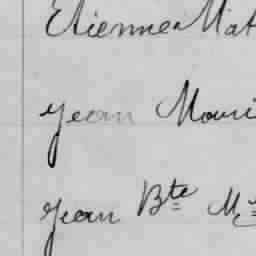 Etienne Mat
Jean Mauri
Jean Bte M